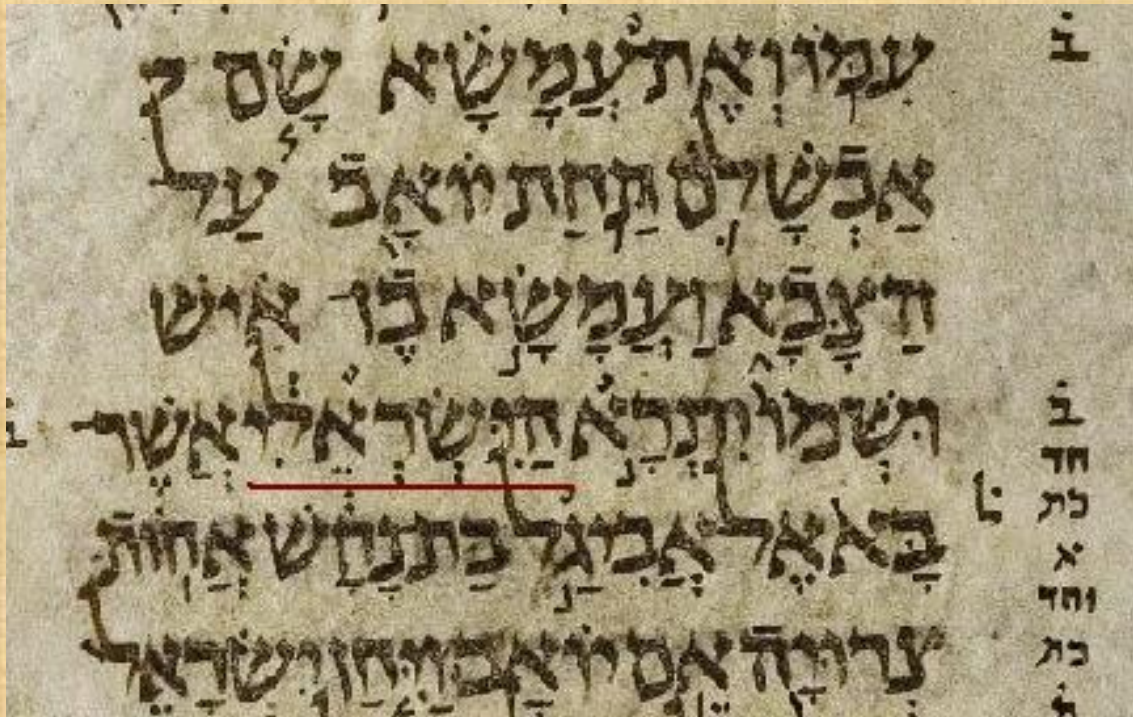 ב
עִמּוֹ וְאֶת עֲמָשָׂא שָׂם
אַבְשָׁלֹם תַּחַת יוֹאָב עַל
הַצָּבָא וַעֲמָשָׂא בֶן אִישׁ
וּשְׁמוֹ יִתְרָא הַיִּשְׂרְאֵלִי אֲשֶׁר
בָּא אֶל אֲבִיגַל בַּת נָחָשׁ אֲחוֹת
צְרוּיָה אֵם יוֹאָב וַיִּחַן יִשְׂרָאֵל
ב
חד
כת
א
וחד
כת